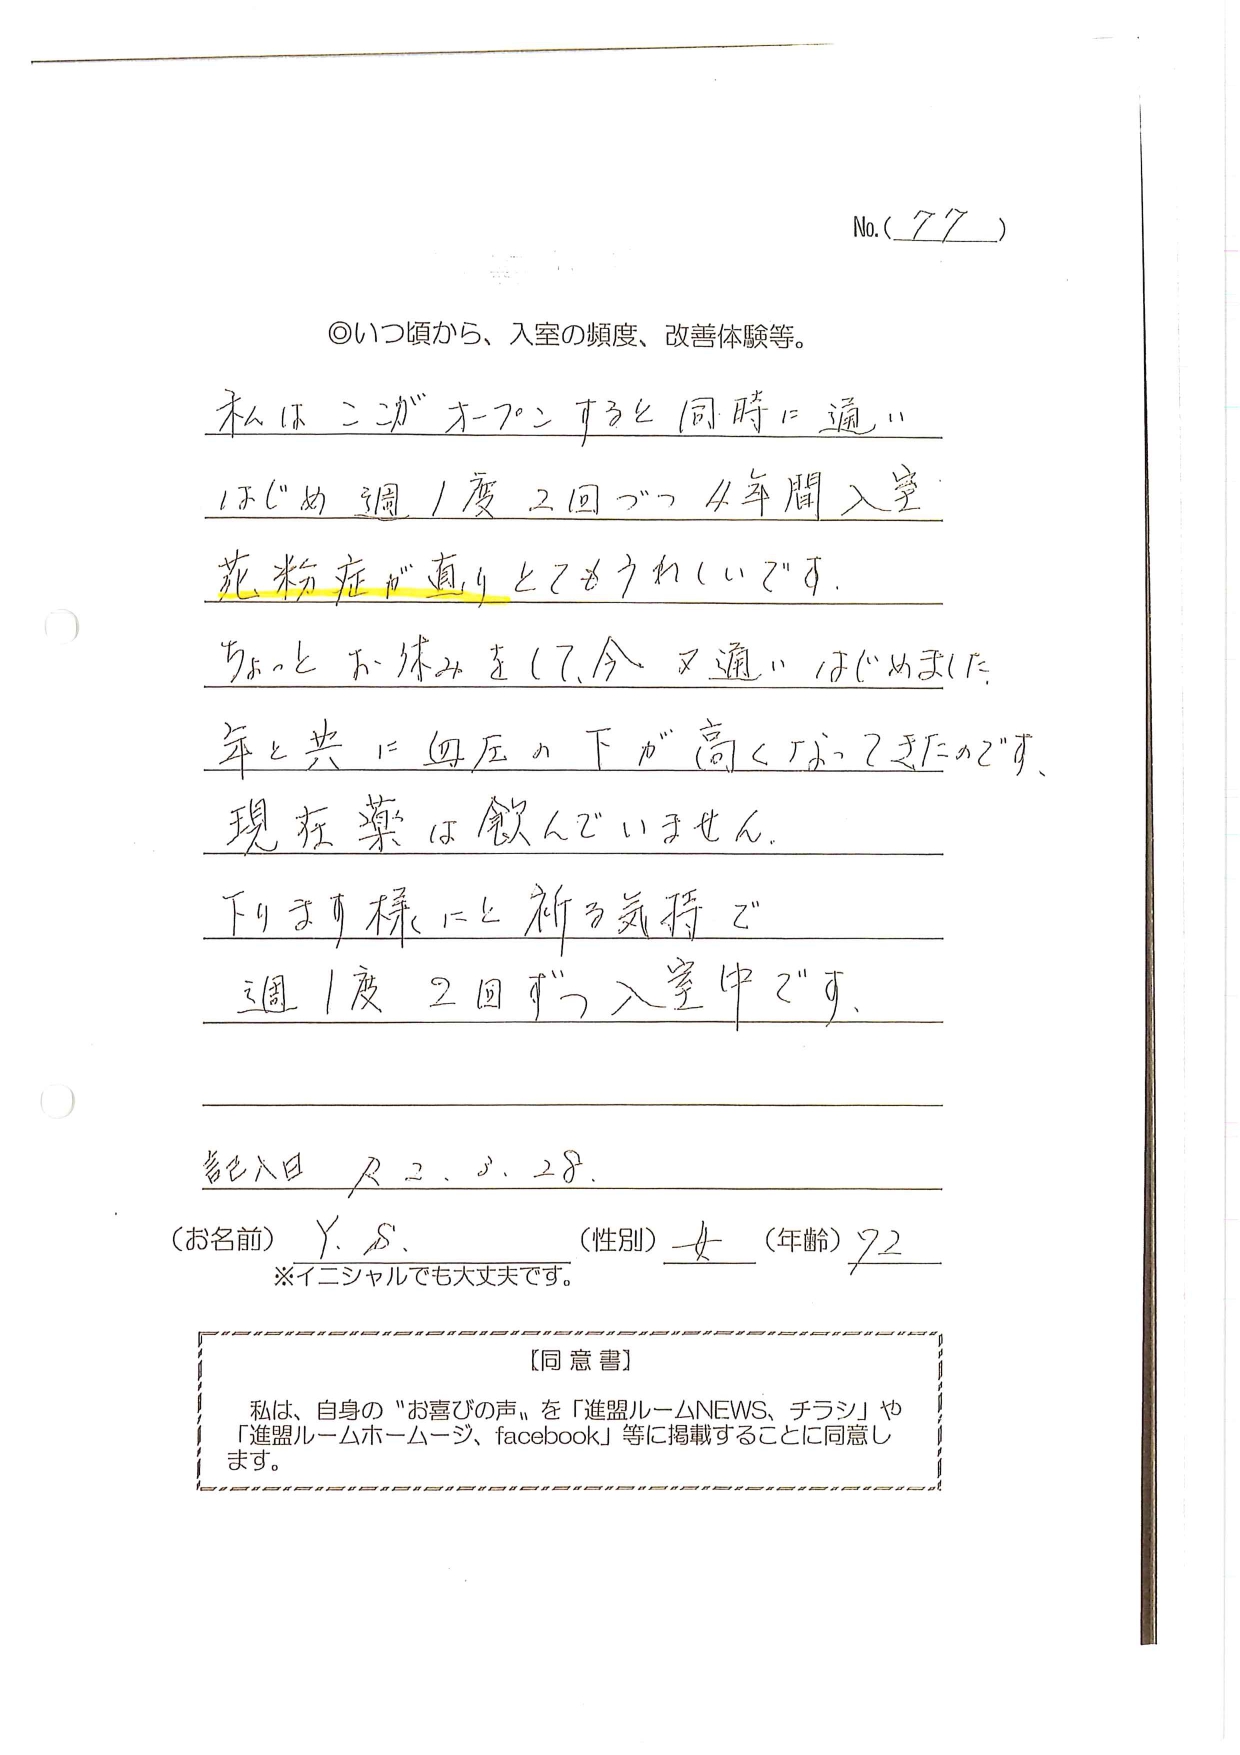 No.(77)
◎いつ頃から、入室の頻度、改善体験等。
私はここがオープンすると同時に通い
はじめ週1度2回づつ4年間入室
花粉症が直りとてもうれしいです.
ちょっとお休みをして、今又通いはじめました.
年と共に血圧の下が高くなってきたのです、
現在薬は飲んでいません.
下ります様にと祈る気持で
週1度2回ずつ入室中です、
記入日 R2.3.28.
(お名前) Y.S. (性別) 女 (年齢) 72
※イニシャルでも大丈夫です。
【同意書】
私は、自身の〝お喜びの声〟を「進盟ルームNEWS、チラシ」や
「進盟ルームホームージ、facebook」等に掲載することに同意し
ます。